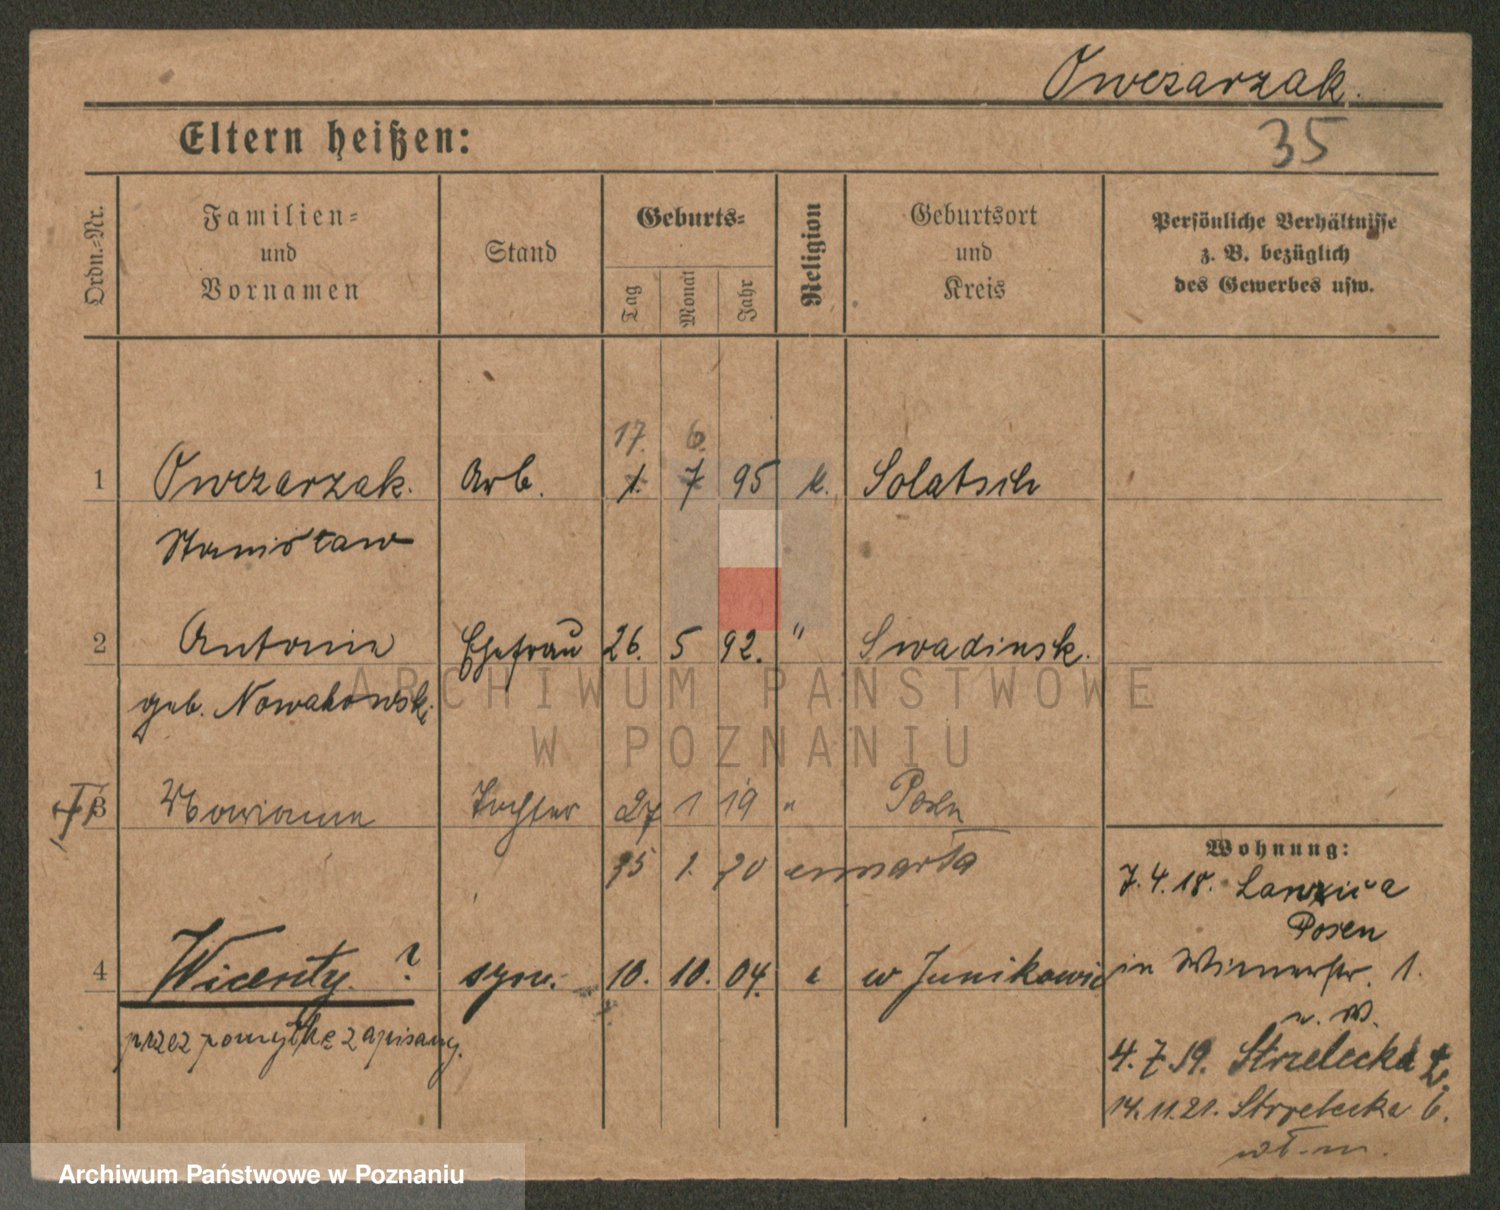 Owczarzak.
35
Eltern heißen:
Ordn.-Nr.
Familien-
und
Vornamen
Stand
Geburts-
Tag
Monat
Jahr
Religion
Geburtsort
und
Kreis
Persönliche Verhältnisse
z. B. bezüglich
des Gewerbes usw.
17. 6.
1 Owczarzak. Arb. 1. 7 95 k. Solatsch
Stanisław
2 Antonie Ehefrau 26. 5 92. " Swadinsk.
geb. Nowakowski
3 Marianne Tochter 27 1 19 " Posen
25 1. 20 umarła
Wohnung:
7.4.18.
Posen
4 Wicenty. ? syn. 10. 10. 04. w Junikowie
przez pomyłkę zapisany.
in 1.
u. W.
4.7.19. Strzelecka
14.11.21. Strzelecka 6.
wł. m.
Archiwum Państwowe
w Poznaniu
Archiwum Państwowe w Poznaniu